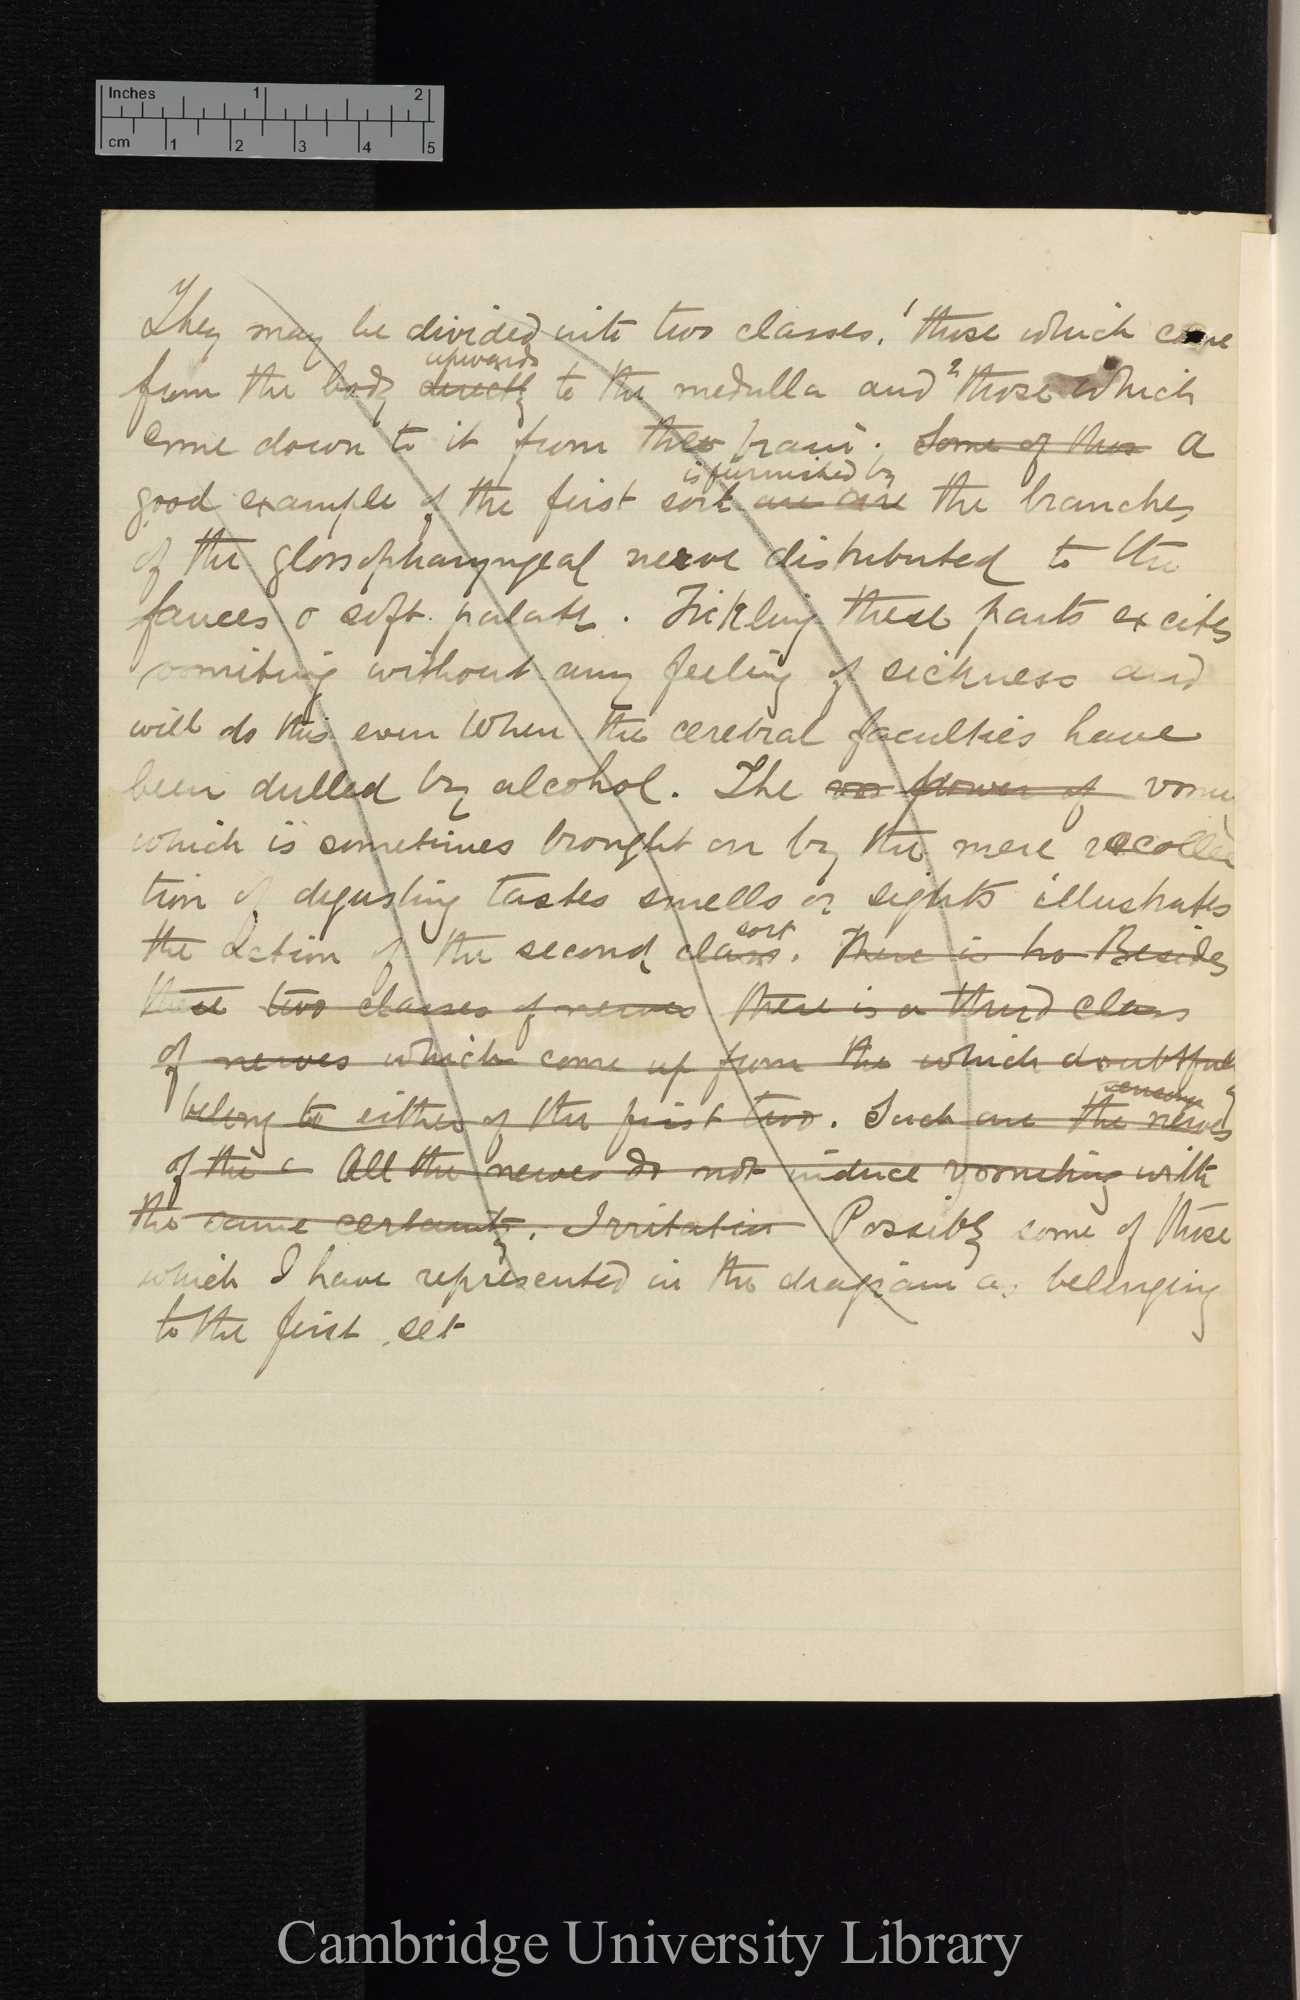 Inches 1 2
cm 1 2 3 4 5
They may be divided into two classes, 1 those which come
upwards
from the body directly to the medulla and 2 those which
come down to it from the brain. Some of thos A
is furnished by
good example of the first sort are are the branches
of the glossopharyngeal nerve distributed to the
fauces & soft palate. Tickling these parts excites
vomiting without any feeling of sickness and
will do this even when the cerebral faculties have
been dulled by alcohol. The power of vomi
which is sometimes brought on by the mere recollec
tion of digusting tastes smells or sights illustrates
sort
the action of the second class. There is no Besides
these two classes of nerves there is a third class
of nerves which come up from the which doubtful
sensory
belong to either of the first two. Such are the nerves
of the c All the nerves do not induce vomiting with
the same certainty. Irritation Possibly some of those
which I have represented in the diagram as belonging
to the first set
Cambridge University Library